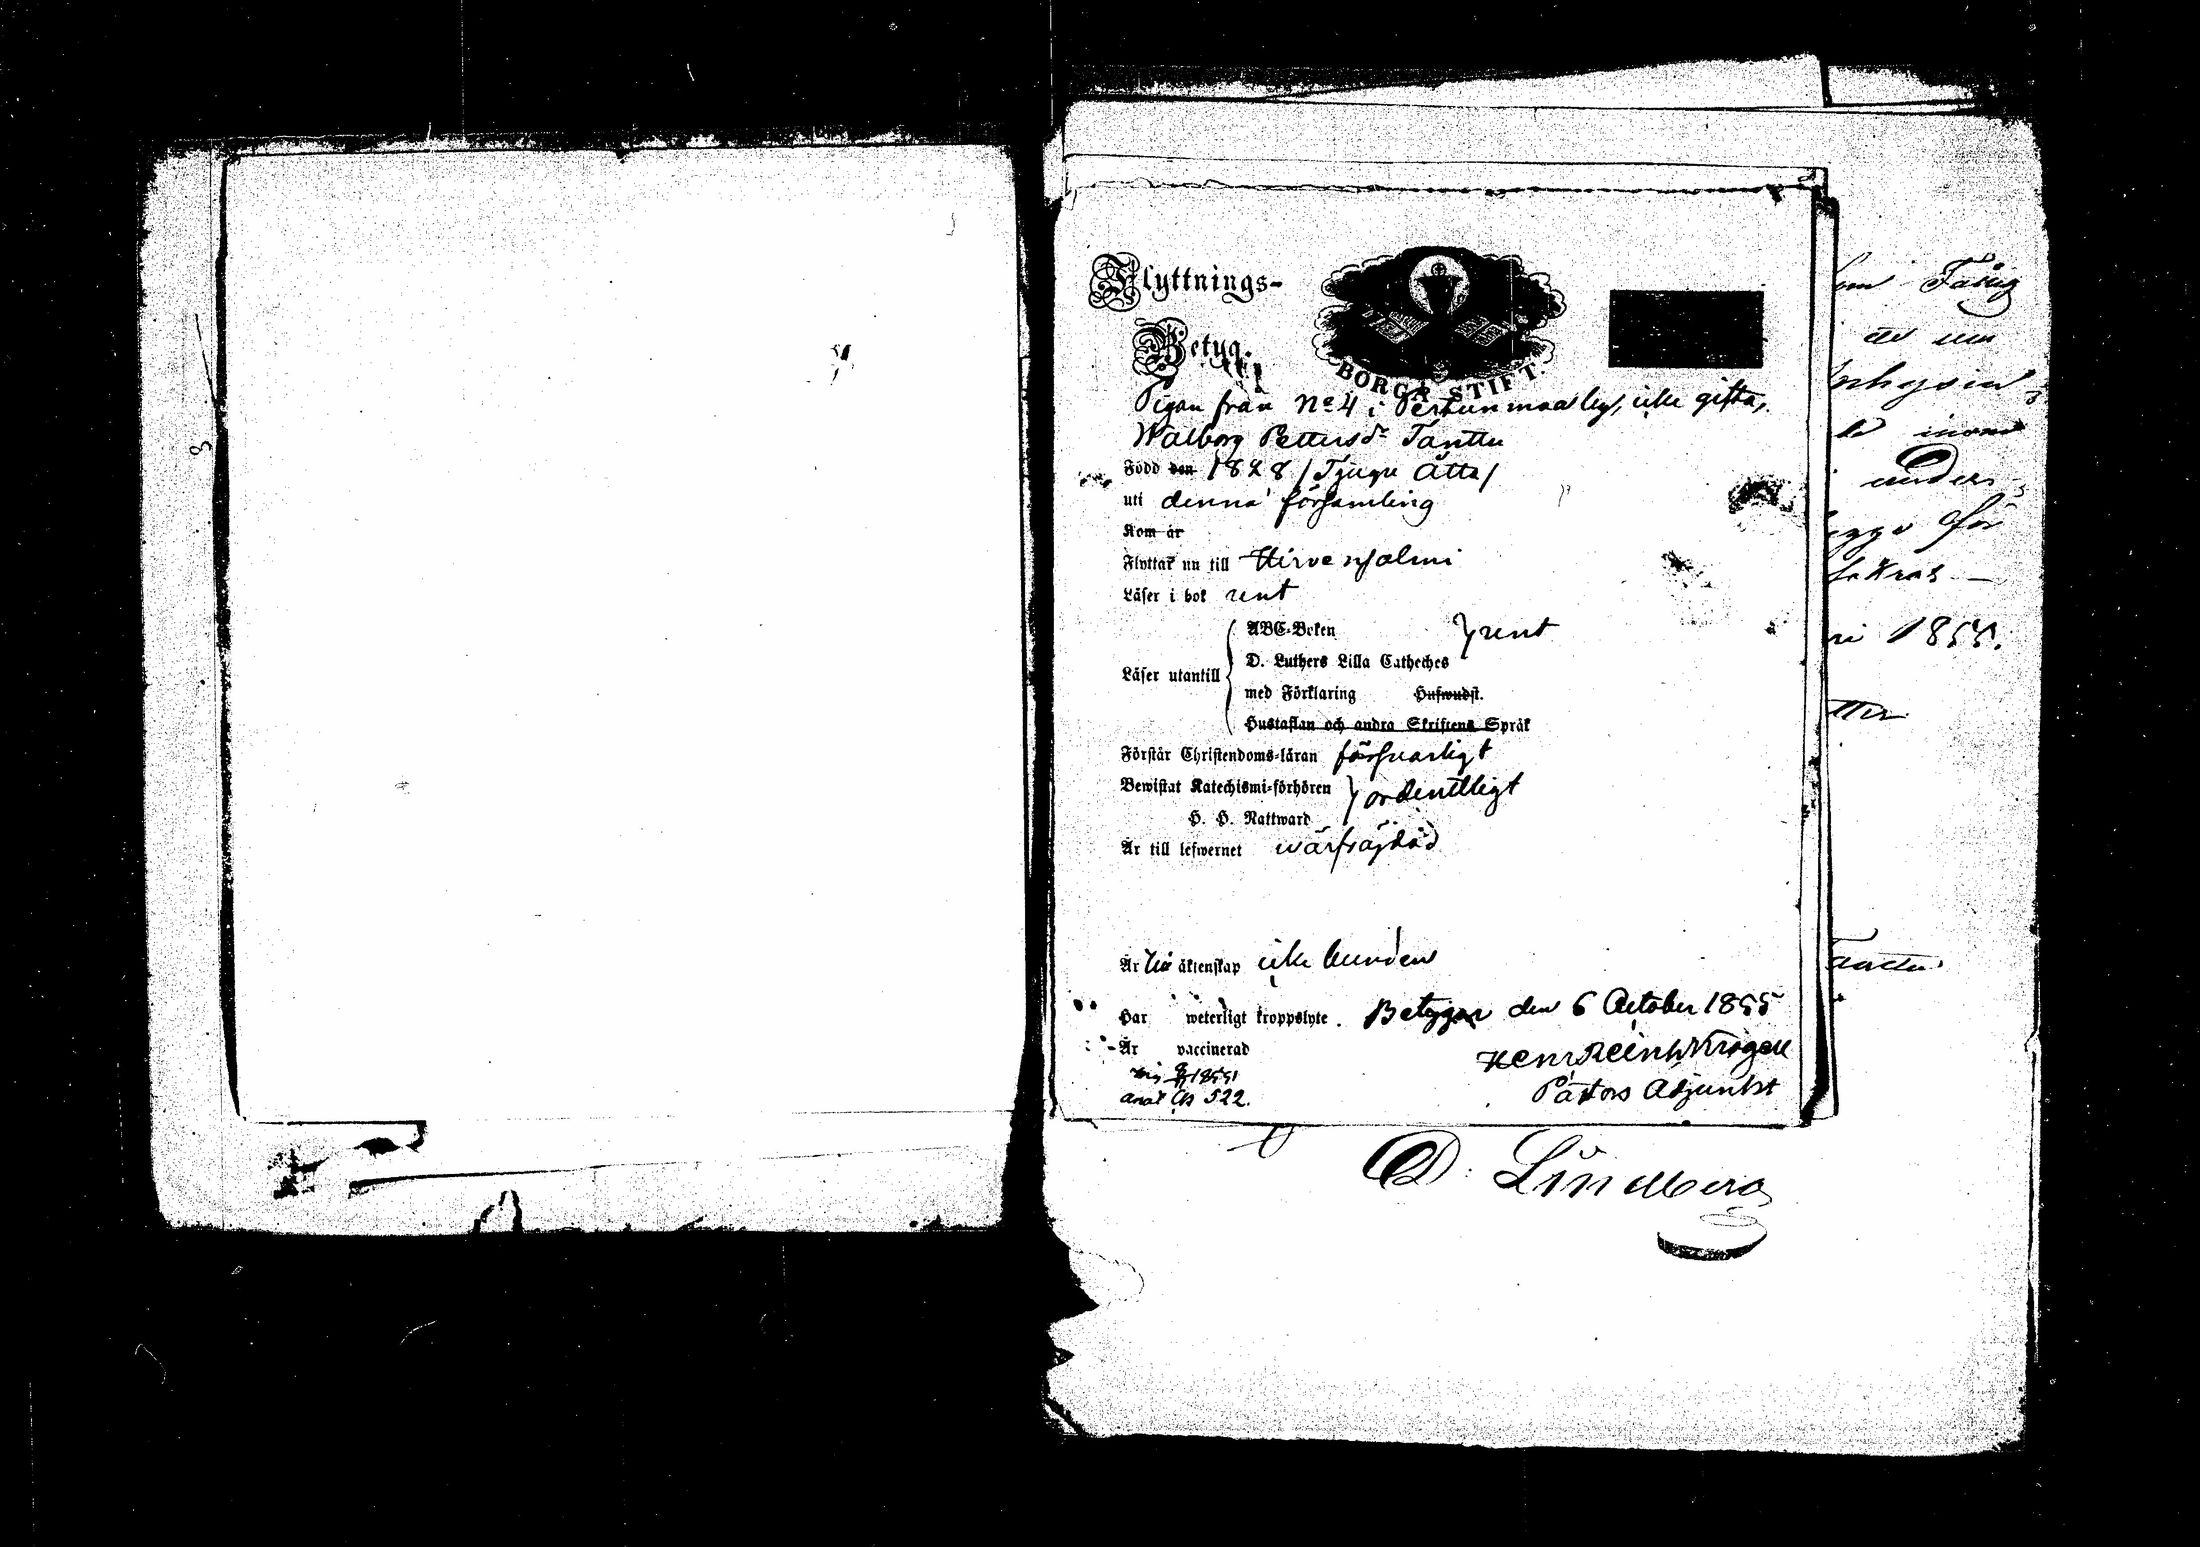 Flyttnings-
Betyg.
BORGÅ STIFT.
Pigan från No 4 i Pertunmaa by, icke gifta,
Walborg Pettersdr Tanttu
Född den 1828 /Tjugu Åtta/
uti denna församling
Kom år
Flyttar nu till Hirvensalmi
Läser i bok rent
ABC-Boken } rent
D. Luthers Lilla Catheches
Läser utantill
med Förklaring Hufwudst.
Hustaflan och andra Skriftens Språk
Förstår Christendoms-läran försvarligt
Bewistat Katechismi-förhören } ordentligt
H. H. Nattward
Är till lefwernet wälfräjdad
Är till äktenskap icke bunden
Har weterligt kroppslyte. Betygar den 6 October 1855
Är vaccinerad
Henr Reinh Krogell
1855
522.
Pastors Adjunkt
D. Lindberg
8
om
de
inom
under-
för
ri 1855.